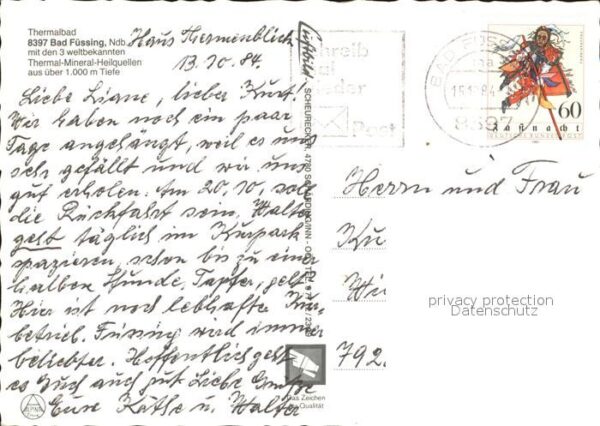 Thermalbad
8397 Bad Füssing, Ndb.
mit den 3 weltbekannten
Thermal-Mineral-Heilquellen
aus über 1.000 m Tiefe
Haus Hermenblick
13.10.84.
Liebe Liane, lieber Kurt.
Wir haben noch ein paar
Tage angehängt, weil es uns
sehr gefällt und wir uns
gut erholen. Am 20.10. soll
die Rückfahrt sein. Walter
geht täglich im Kurpark
spazieren, schon bis zu einer
halben Stunde. Tapfer, gell?
Hier ist noch lebhafter Kur-
betrieb. Füssing wird immer
beliebter. Hoffentlich geht
es Euch auch gut. Liebe Grüße
Eure Käthe u. Walter
Luftbild
SCHEURECK
Das Zeichen
Qualität
Schreib
mal
wieder
Post
BAD FÜSSING
15.10.84
8397
60
Fastnacht
DEUTSCHE BUNDESPOST
Herrn und Frau
Ku
Wi
792.
privacy protection
Datenschutz